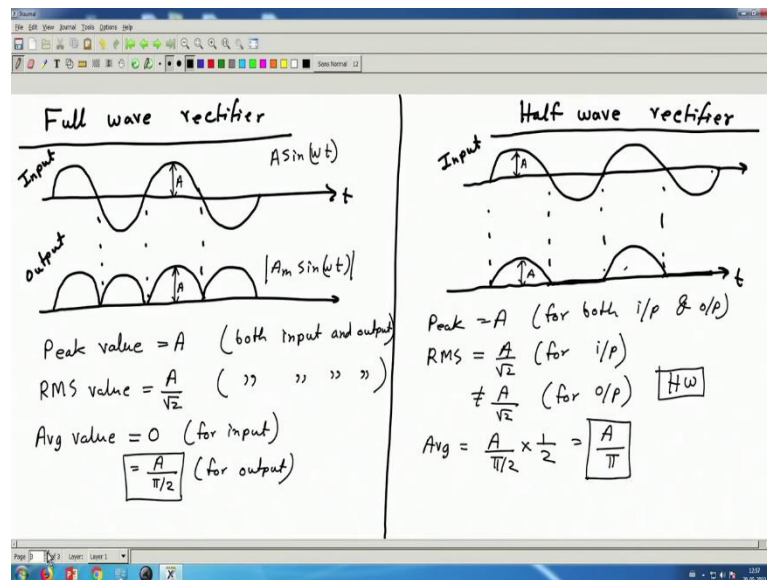 Xournal
File Edit View Journal Tools Options Help
Sans Normal 12
Full wave rectifier
Input
A Sin(ωt)
A
t
Output
|Am Sin(ωt)|
A
Peak value = A (both input and output)
RMS value = A/√2 ( ,, ,, ,, ,, )
Avg value = 0 (for input)
= A/π/2 (for output)
Half wave rectifier
Input
A
A
t
Peak = A (for both i/p & o/p)
RMS = A/√2 (for i/p)
≠ A/√2 (for o/p) HW
Avg = A/π/2 × 1/2 = A/π
Page 3 of 3 Layer: Layer 1
12:37